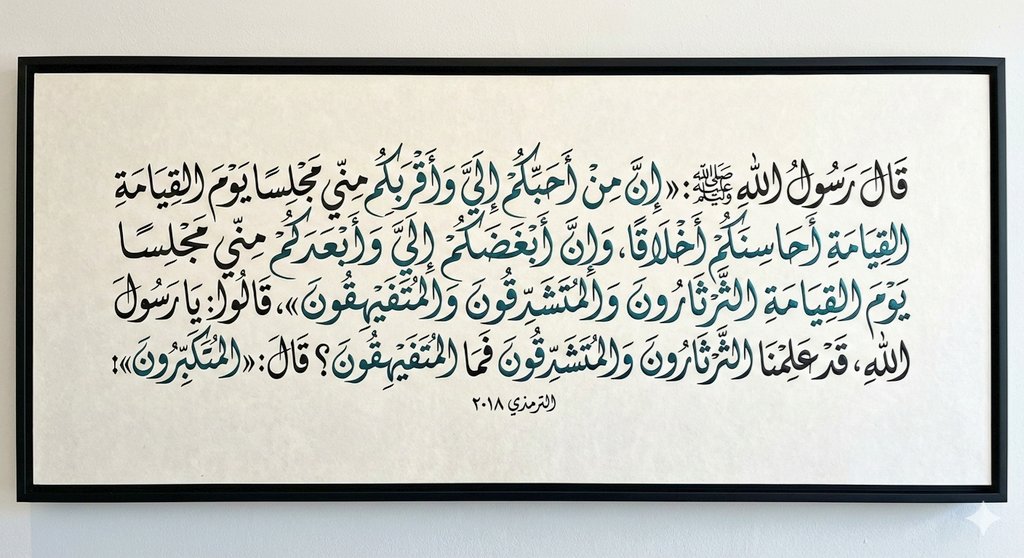 قَالَ رَسُولُ اللهِ ﷺ: «إِنَّ مِنْ أَحَبِّكُمْ إِلَيَّ وَأَقْرَبِكُمْ مِنِّي مَجْلِسًا يَوْمَ القِيَامَةِ
القِيَامَةِ أَحَاسِنَكُمْ أَخْلَاقًا، وَإِنَّ أَبْغَضَكُمْ إِلَيَّ وَأَبْعَدَكُمْ مِنِّي مَجْلِسًا
يَوْمَ القِيَامَةِ الثَّرْثَارُونَ وَالمُتَشَدِّقُونَ وَالمُتَفَيْهِقُونَ»، قَالُوا: يَا رَسُولَ
اللهِ، قَدْ عَلِمْنَا الثَّرْثَارُونَ وَالمُتَشَدِّقُونَ فَمَا المُتَفَيْهِقُونَ؟ قَالَ: «المُتَكَبِّرُونَ»!
الترمذي ٢٠١٨